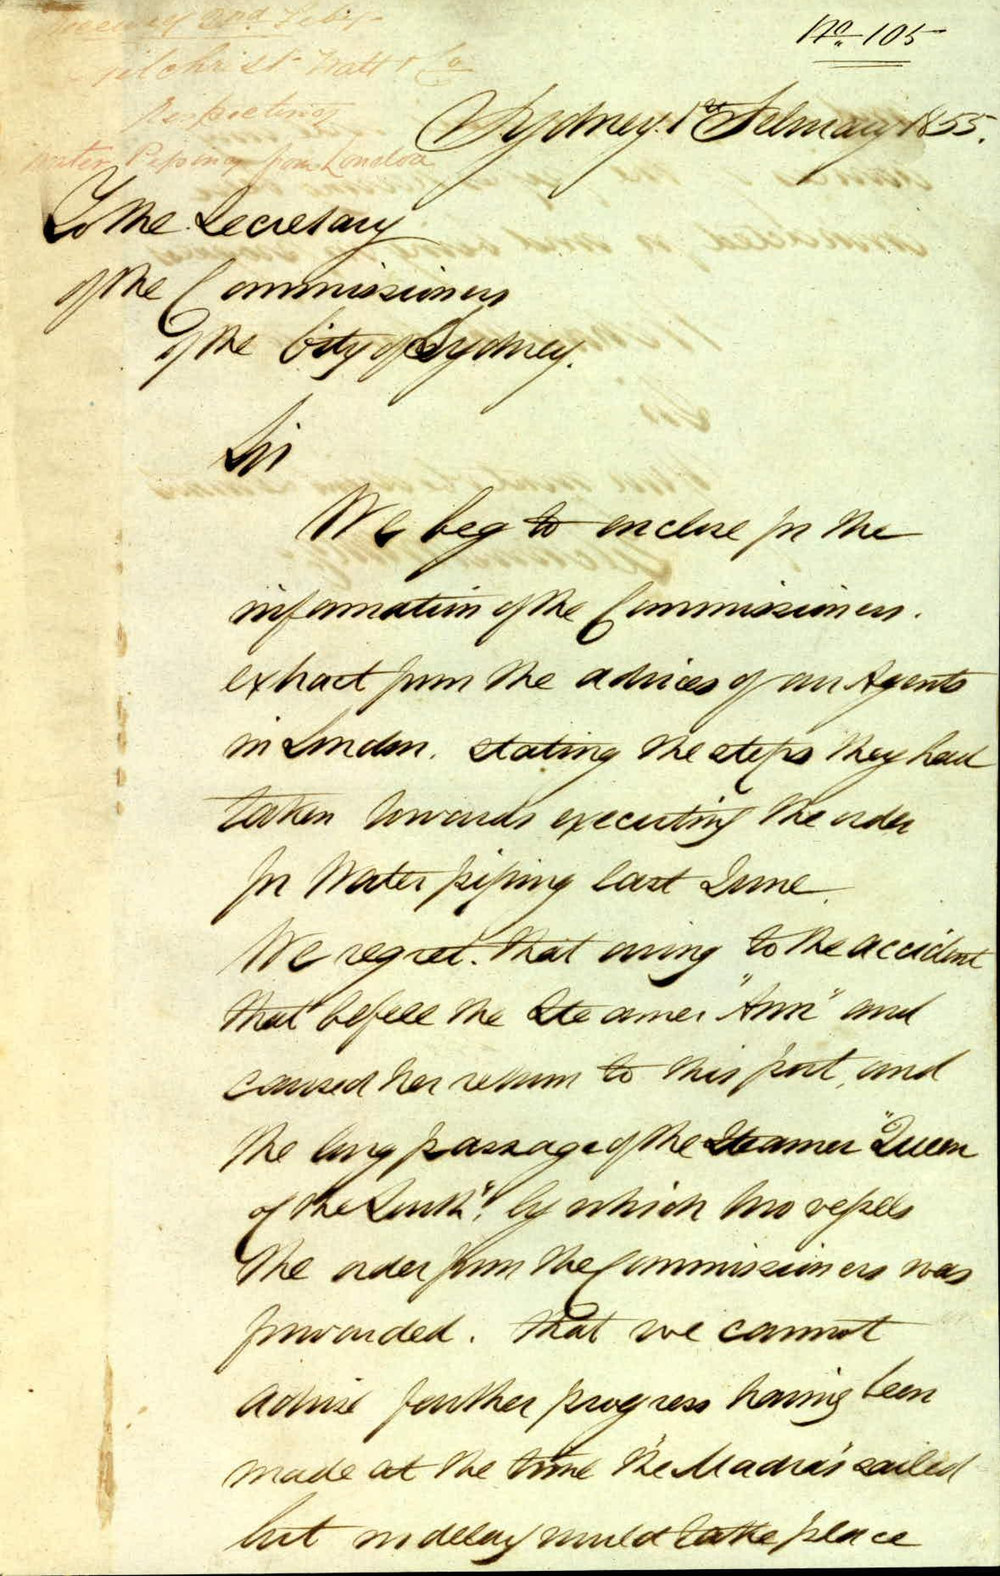 No. 105
Received 2nd Feby
Gilchrist Watt & Co
Respecting
Water Piping from London
Sydney 1st February 1855.
To the Secretary
of the Commissioners
of the City of Sydney.
Sir
We beg to enclose for the
information of the Commissioners.
extract from the advices of our Agents
in London. stating the steps they had
taken towards executing the order
for Water piping last June.
We regret. that owing to the accident
that befell the Steamer "Ann" and
caused her return to this port, and
the long passage of the Steamer "Queen
of the South", by which two vessels
the order from the Commissioners was
forwarded. that we cannot
advise further progress having been
made at the time the "Madras" sailed
but no delay would take place